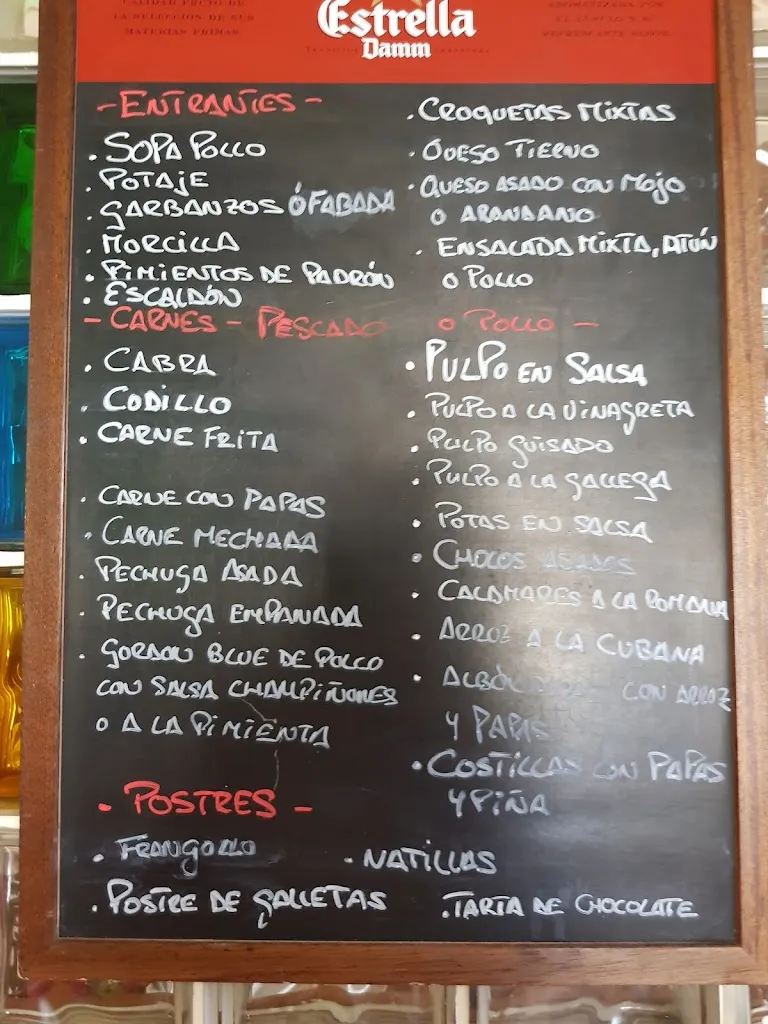 CALIDAD FRUTO DE
LA SELECCIÓN DE SUS
MATERIAS PRIMAS
Estrella
Damm
- ENTRANTES -
. SOPA POLLO
. POTAJE
. GARBANZOS Ó FABADA
. MORCILLA
. PIMIENTOS DE PADRÓN
. ESCALDÓN
. CROQUETAS MIXTAS
. QUESO TIERNO
. QUESO ASADO CON MOJO
O ARANDANO
. ENSALADA MIXTA, ATÚN
O POLLO
- CARNES - PESCADO O POLLO -
. CABRA
. CODILLO
. CARNE FRITA
. CARNE CON PAPAS
. CARNE MECHADA
. PECHUGA ASADA
. PECHUGA EMPANADA
. GORDON BLUE DE POLLO
CON SALSA CHAMPIÑONES
O A LA PIMIENTA
. PULPO EN SALSA
. PULPO A LA VINAGRETA
. PULPO GUISADO
. PULPO A LA GALLEGA
. POTAS EN SALSA
. CHOCOS ASADOS
. CALAMARES A LA ROMANA
. ARROZ A LA CUBANA
. CON ARROZ
Y PAPAS
. COSTILLAS CON PAPAS
Y PIÑA
- POSTRES -
. FRANGOLLO
. NATILLAS
. POSTRE DE GALLETAS
. TARTA DE CHOCOLATE